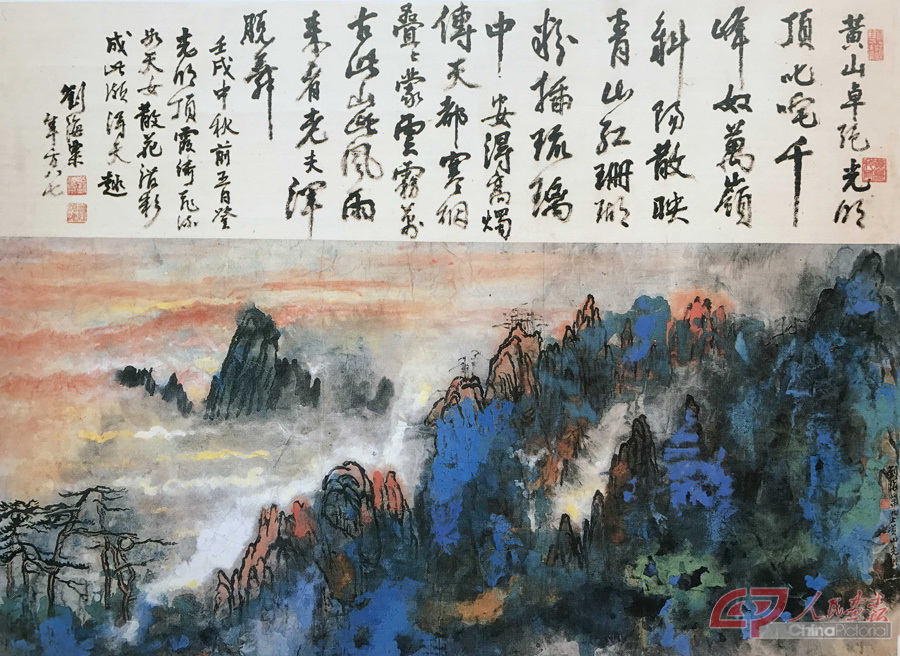 黃山卓絕光明
頂叱咤千
峰奴萬嶺
斜陽散映
青山紅珊瑚
粉播琉璃
中安得高燭
傳天都寒烟
疊疊蒙雲霧萬
古此山此風雨
來看老夫渾
脫舞
壬戌中秋前五日登
光明頂霞綺飛流
如天女散花潑彩
成此頗得天趣
劉海粟
年方八七
人民画报
ChinaPictorial